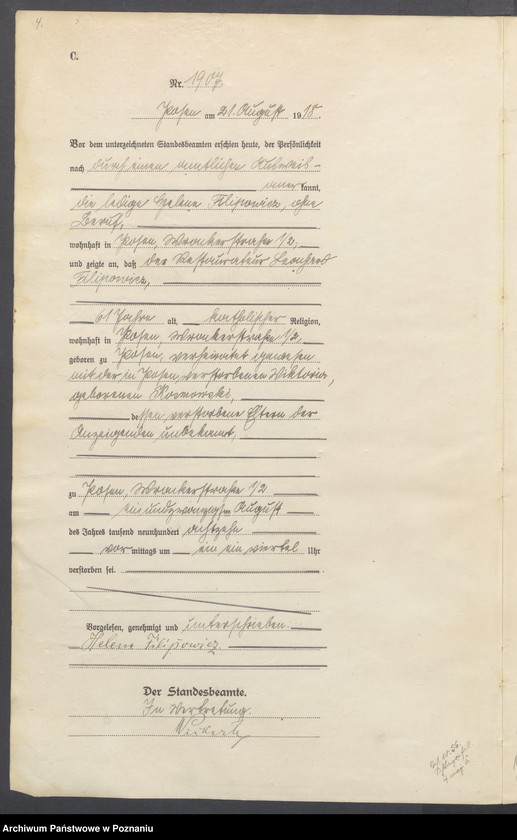 4.
C.
Nr. 1907.
Posen am 21. August 1918.
Vor dem unterzeichneten Standesbeamten erschien heute, der Persönlichkeit
nach durch einen amtlichen Ausweis-
anerkannt,
die ledige Helene Filipowicz, ohne
Beruf,
wohnhaft in Posen, Wronkerstraße 1/2,
und zeigte an, daß der Restaurateur Leonhard
Filipowicz,
61 Jahre alt, katholischer Religion,
wohnhaft in Posen, Wronkerstraße 1/2,
geboren zu Posen, verheiratet gewesen
mit der in Posen, verstorbenen Wiktoria,
geborenen
dessen, verstorbene Eltern der
Anzeigenden unbekannt,
zu Posen, Wronkerstraße 1/2
am einundzwanzigsten August
des Jahres tausend neunhundert achtzehn
vormittags um ein ein viertel Uhr
verstorben sei.
Vorgelesen, genehmigt und unterschrieben.
Helene Filipowicz.
Der Standesbeamte.
In Vertretung.
Archiwum Państwowe w Poznaniu